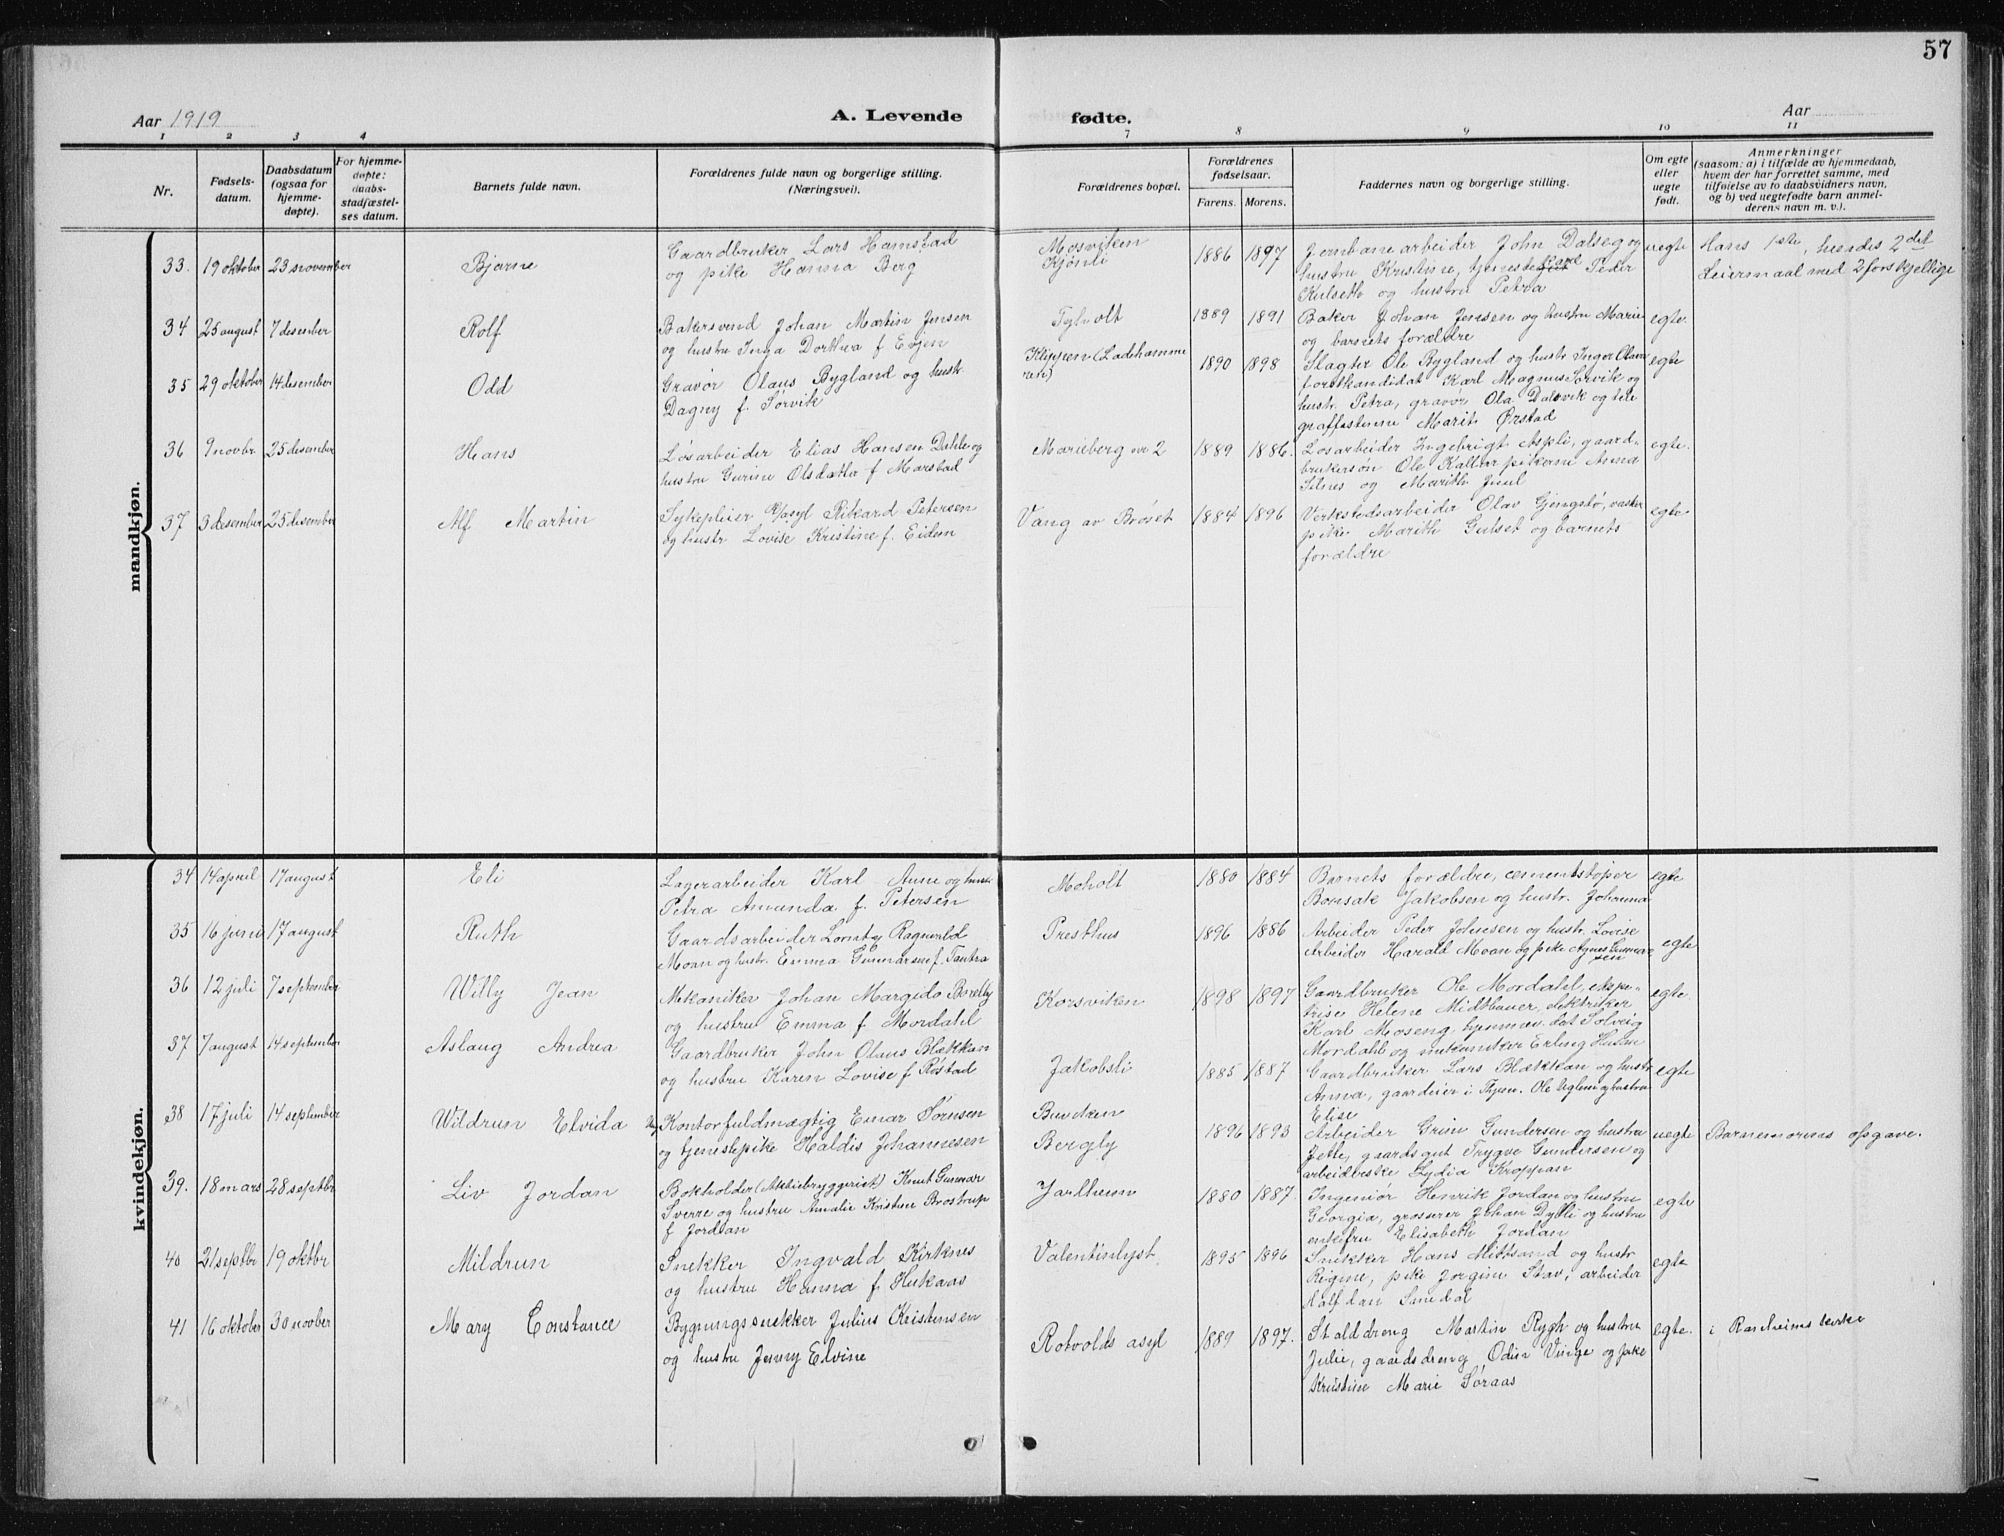 57
Aar 1919
A. Levende
fødte.
Aar
1 2 3 4 7 8 9 10 11
Nr.
Fødsels-
datum.
Daabsdatum
(ogsaa for
hjemme-
døpte).
For hjemme-
døpte:
daabs-
stadfæstel-
ses datum.
Barnets fulde navn.
Forældrenes fulde navn og borgerlige stilling.
(Næringsvei).
Forældrenes bopæl.
Forældrenes
fødselsaar.
Farens. Morens.
Faddernes navn og borgerlige stilling.
Om egte
eller
uegte
født.
Anmerkninger
(saasom: a) i tilfælde av hjemmedaab,
hvem der har forrettet samme, med
tilføielse av to daabsvidners navn,
og b) ved uegtefødte barn anmel-
derens navn m. v.).
mandkjøn.
33. 19 oktober 23 november Bjarne
Gaardbruker Lars Hamstad
og pike Hanna Berg
Mosviken
Kjönli
1886 1897
Jernbanearbeider John Dalseg og
hustru Kristine, tjeneste karl Peder
Kulseth og hustru Petra
uegte
Hans 1ste, hendes 2det
Leiermaal med 2 forskjellige
34 25 august 7 desember Rolf
Bakersvend Johan Martin Jensen
og hustru Inga Dorthea f Evjen
Tyholt
1889 1891
Baker Johan Jensen og hustru Marie
og barnets forældre
egte.
35 29 oktober 14 desember Odd
Gravør Olaus Bygland og hustr
Dagny f. Sørvik
Klippen (Ladehamme
ren)
1890 1898
Slagter Ole Bygland og hustr Inger Olava
forstkandidat Karl Magnus Sørvik og
hustr. Petra, gravør Ola Dalsvik og tele
graffistinne Marit Ørstad
egte
36 9 novbr 25 desember Hans
Løsarbeider Elias Hansen Dahle og
hustru Gurine Olsdatter f Marstad
Marieberg nr 2
1889 1886.
Løsarbeider Ingebrigt Aspli, gaard-
brukersøn Ole Kalltar pikerne Anna
Silnes og Marith Juul
egte.
37 3 desember 25 desember Alf Martin
Sykepleier v/asyl Rikard Petersen
og hustr Lovise Kristine f. Eidem
Vang av Brøset
1884 1896
Verkstedsarbeider Olav Gjengstø, vasker
pike Marith Gulset og barnets
forældre
egte.
kvindekjøn.
34 14 april 17 august Eli
Lagerarbeider Karl Aune og hustr
Petra Amunda f. Petersen
Moholt
1880 1884
Barnets forældre, cementstøper
Bonsak Jakobsen og hustr. Johanna
egte
35 16 juni 17 august Ruth
Gaardsarbeider Lornty Ragnvald
Moan og hustr. Emma Gunnarsine f. Tautra
Presthus
1896 1886
Arbeider Peder Johnsen og hustr. Lovise
Arbeider Harald Moan og pike Agnes Gunnar
sen
egte
36 12 juli 7 september Willy Jean
Mekaniker Johan Margido Boxelby
og hustru Emma f Mordahl
Korsviken
1898 1897
Gaardbruker Ole Mordahl, ekspe-
trise Helene Midtbauer, elektriker
Karl Moseng, hjemmev. dat Solveig
Mordahl og mekaniker Erling Halm
egte.
37 7 august 14 september Aslaug Andrea
Gaardbruker John Olaus Blækkan
og hustru Karen Lovise f Røstad
Jakobsli
1885 1887
Gaardbruker Lars Blækkan og hustr
Anna, gaardeier i Thyen. Ole Uglem og hustru
Elise
egte
38 17 juli 14 september Wildrun Elvida
Kontorfuldmægtig Einar Sørensen
og tjenestepike Haldis Johannesen
Buviken
Bergly
1896 1893
Arbeider Grim Gundersen og hustru
Jette, gaardsgut Trygve Gundersen og
arbeiderske Lydia Kroppan
uegte
Barnemorens opgave.
39. 18 mars 28 septbr Liv Jordan
Bokholder (Aktiebryggeriet) Knut Gunnar
Sverre og hustru Amalie Kristine Brostrup
f Jordan
Jarlheim
1880 1887
Ingeniør Henrik Jordan og hustru
Georgia, grosserer Johan Dybli og hustru
enkefru Elisabeth Jordan
egte
40 21 septbr 19 oktbr Mildrun
Snekker Ingvald Kirknes
og hustru Hanna f. Hukaas
Valentinlyst
1895 1896
Snekker Hans Mittsand og hustr
Regine, pike Jorgine Stav, arbeider
Halfdan Sundal
egte
41 16 oktober 30 november Mary Constance
Bygningssnekker Julius Kristensen
og hustru Jenny Elvine
Rotvolds asyl
1889 1897.
Stalldreng Martin Rygh og hustru
Julie, gaardsdreng Odin Vinge og pike
Kristine Marie Søraas
egte.
i Ranheims kirke